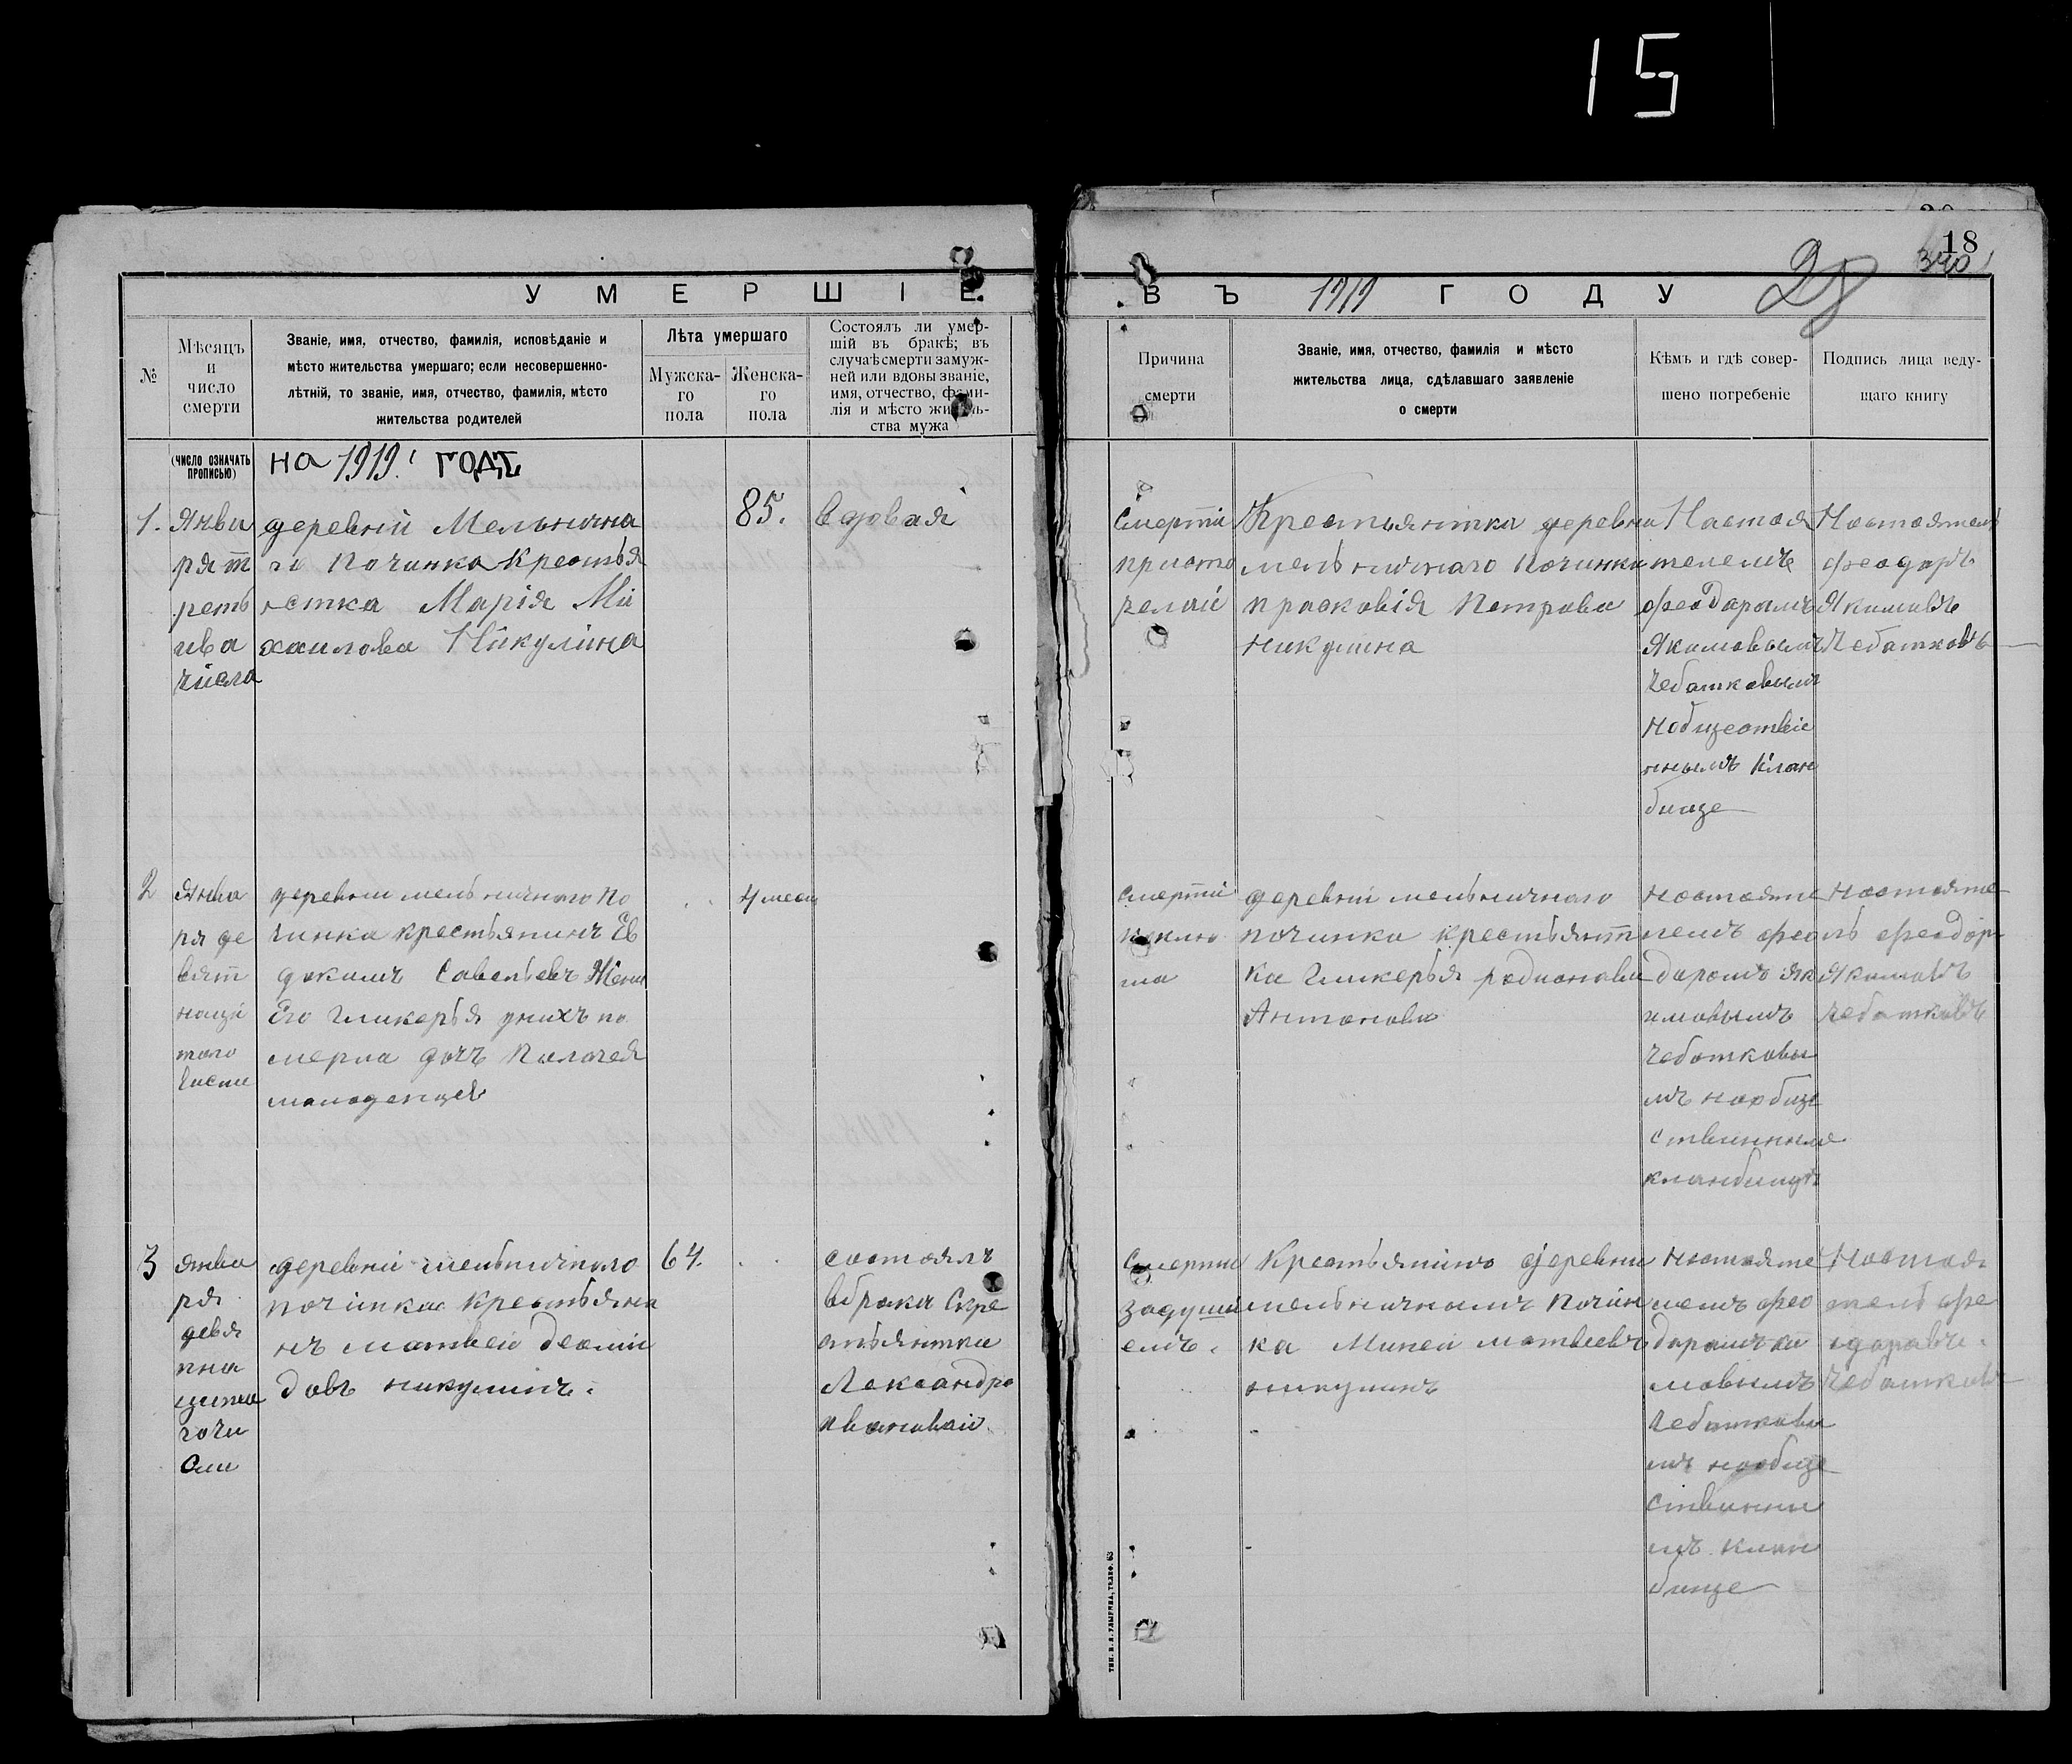 15
18
390
28
УМЕРШІЕ
ВЪ 1919 ГОДУ
№
Мѣсяцъ
и
число
смерти
Званіе, имя, отчество, фамилія, исповѣданіе и
мѣсто жительства умершаго; если несовершенно-
лѣтній, то званіе, имя, отчество, фамилія, мѣсто
жительства родителей
Лѣта умершаго
Мужска-
го
пола
Женска-
го
пола
Состоялъ ли умер-
шій въ бракѣ; въ
случаѣ смерти замуж-
ней или вдовы званіе,
имя, отчество, фами-
лія и мѣсто житель-
ства мужа
Причина
смерти
Званіе, имя, отчество, фамилія и мѣсто
жительства лица, сдѣлавшаго заявленіе
о смерти
Кѣмъ и гдѣ совер-
шено погребеніе
Подпись лица веду-
щаго книгу
(число означать
прописью)
на 1919. годъ
1.
Янва
ря т
реть
ива
числа
деревни Мельнична
го Починка Крестья
нстка Марія Ми
хаилова Никулина
85.
вдовая
Смерти
Крестьянтка деревни
мельничнаго Починка
прасковія Петрова
Никулина
Настоя
телемъ
феодарымъ
Якимовымъ
Чебатковымъ
Настоятель
феодаръ
Якимовъ
Чебатковъ
2
Янва
ря де
вят
деревни мельничнаго По
чинка крестьянинъ Ев
доким Савельевъ Жена
Его гликерья унихъ по
мерла дочъ Палагея
младенцев
4 месц
смерти
деревни мельничнаго
починка крестьянт
ка гликерья родионова
Антонова
настояте
лемъ фео
даромъ як
имовымъ
чебаткавы
мъ наобще
ствинныме
кланбище
настояте
ль феодор
якимовъ
чебатковъ
3
янва
ря
девя
тна
деревни мельничнаго
починка крестьяни
нъ матвеи
никулинъ.
64.
состоялъ
вбраки Скре
стьянтки
Лександра
ивановаи
Смерти
задуши
емъ.
Крестьянинъ деревни
мельничнымъ Почин
ка Миней матвеевъ
никулинъ
настояте
лемъ фео
даромъ
мовымъ
чебаткавы
мъ наобще
ствинны
мъ клан
бище
Настоя
тель фе
чебатковъ